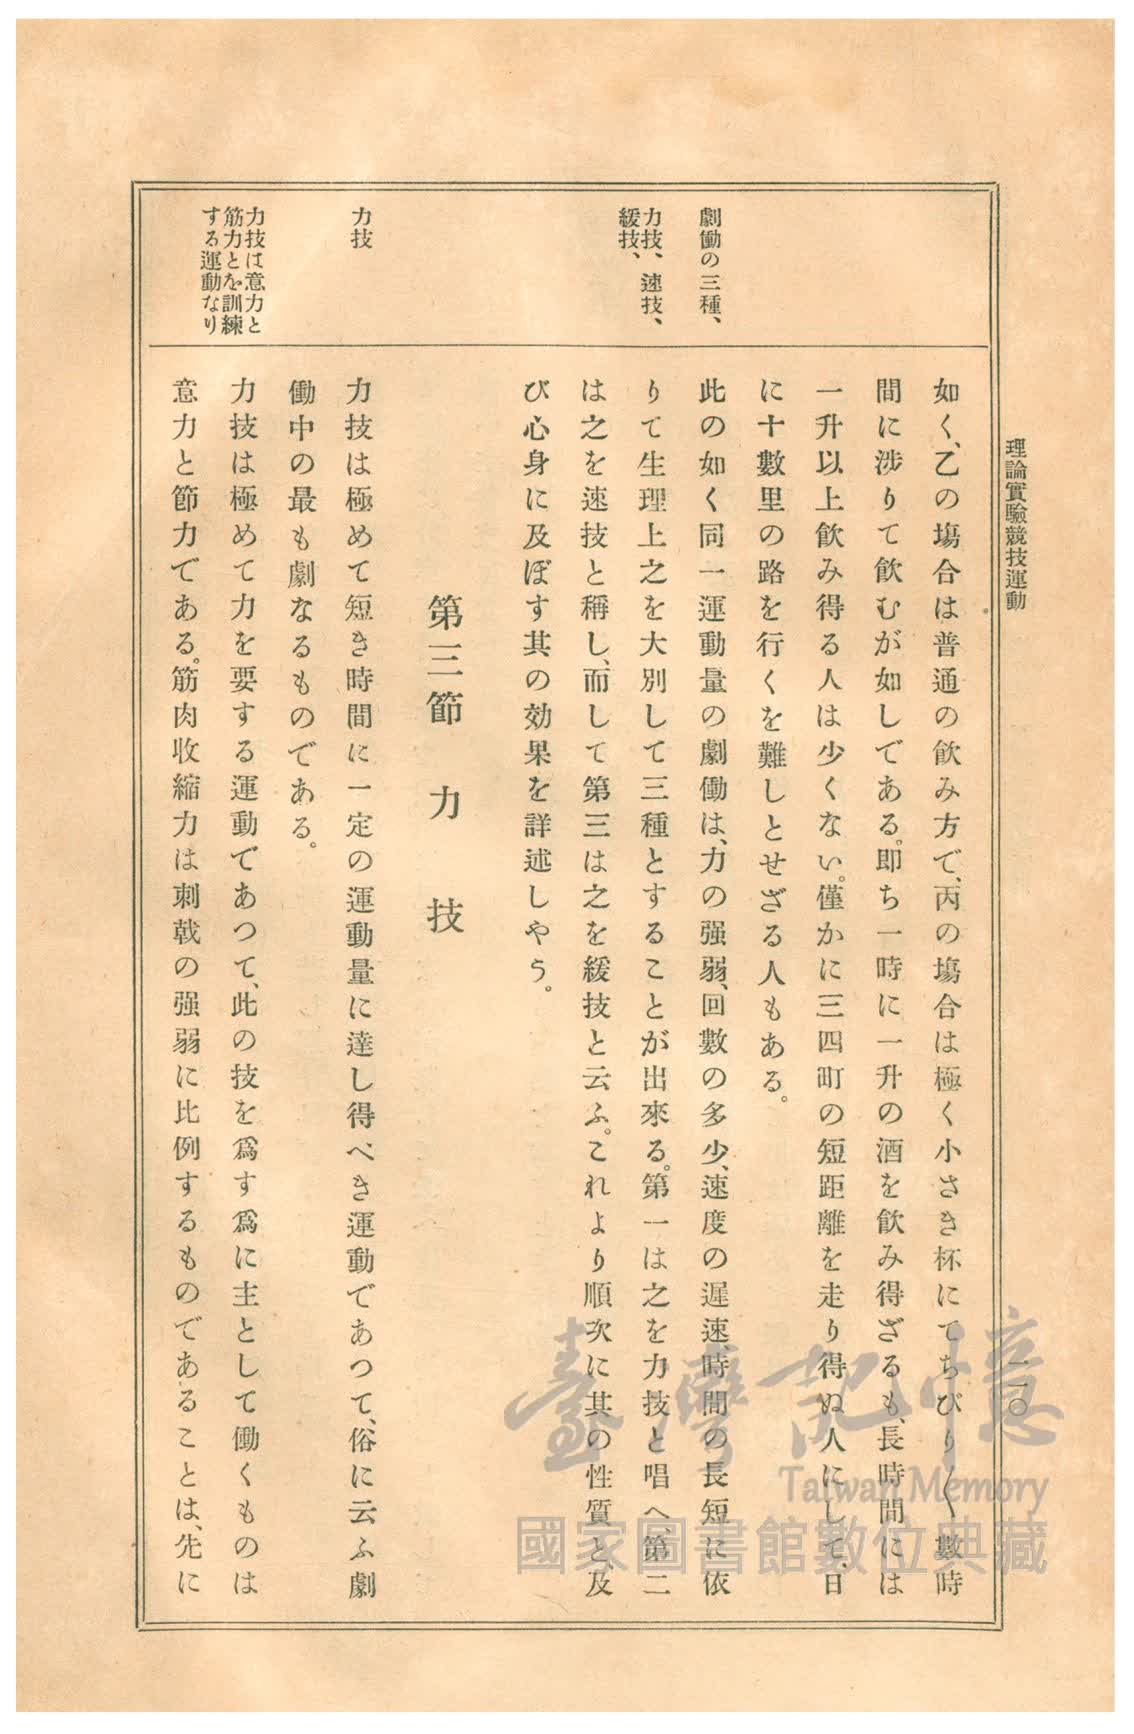 理論實驗競技運動
一一〇
劇働の三種、
力技、速技、
緩技、
力技
力技は意力と
筋力とを訓練
する運動なり
如く、乙の塲合は普通の飲み方で、丙の塲合は極く小さき杯にてちびり〱數時
間に涉りて飲むが如しである。即ち一時に一升の酒を飲み得ざるも、長時間には
一升以上飲み得る人は少くない。僅かに三四町の短距離を走り得ぬ人にして、日
に十數里の路を行くを難しとせざる人もある。
此の如く同一運動量の劇働は、力の强弱、回數の多少、速度の遲速、時間の長短に依
りて生理上之を大別して三種とすることが出來る。第一は之を力技と唱へ、第二
は之を速技と稱し、而して第三は之を緩技と云ふ。これより順次に其の性質と、及
び心身に及ぼす其の効果を詳述しやう。
第三節　力　技
力技は極めて短き時間に一定の運動量に達し得べき運動であつて、俗に云ふ劇
働中の最も劇なるものである。
力技は極めて力を要する運動であつて、此の技を爲す爲に主として働くものは
意力と節力である。筋肉收縮力は刺戟の强弱に比例するものであることは、先に
臺灣記憶
Taiwan Memory
國家圖書館數位典藏